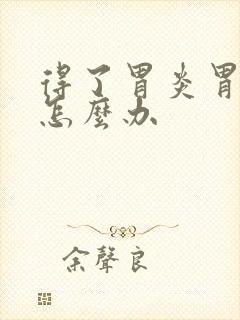 得了胃炎胃
怎麼办
余聲良